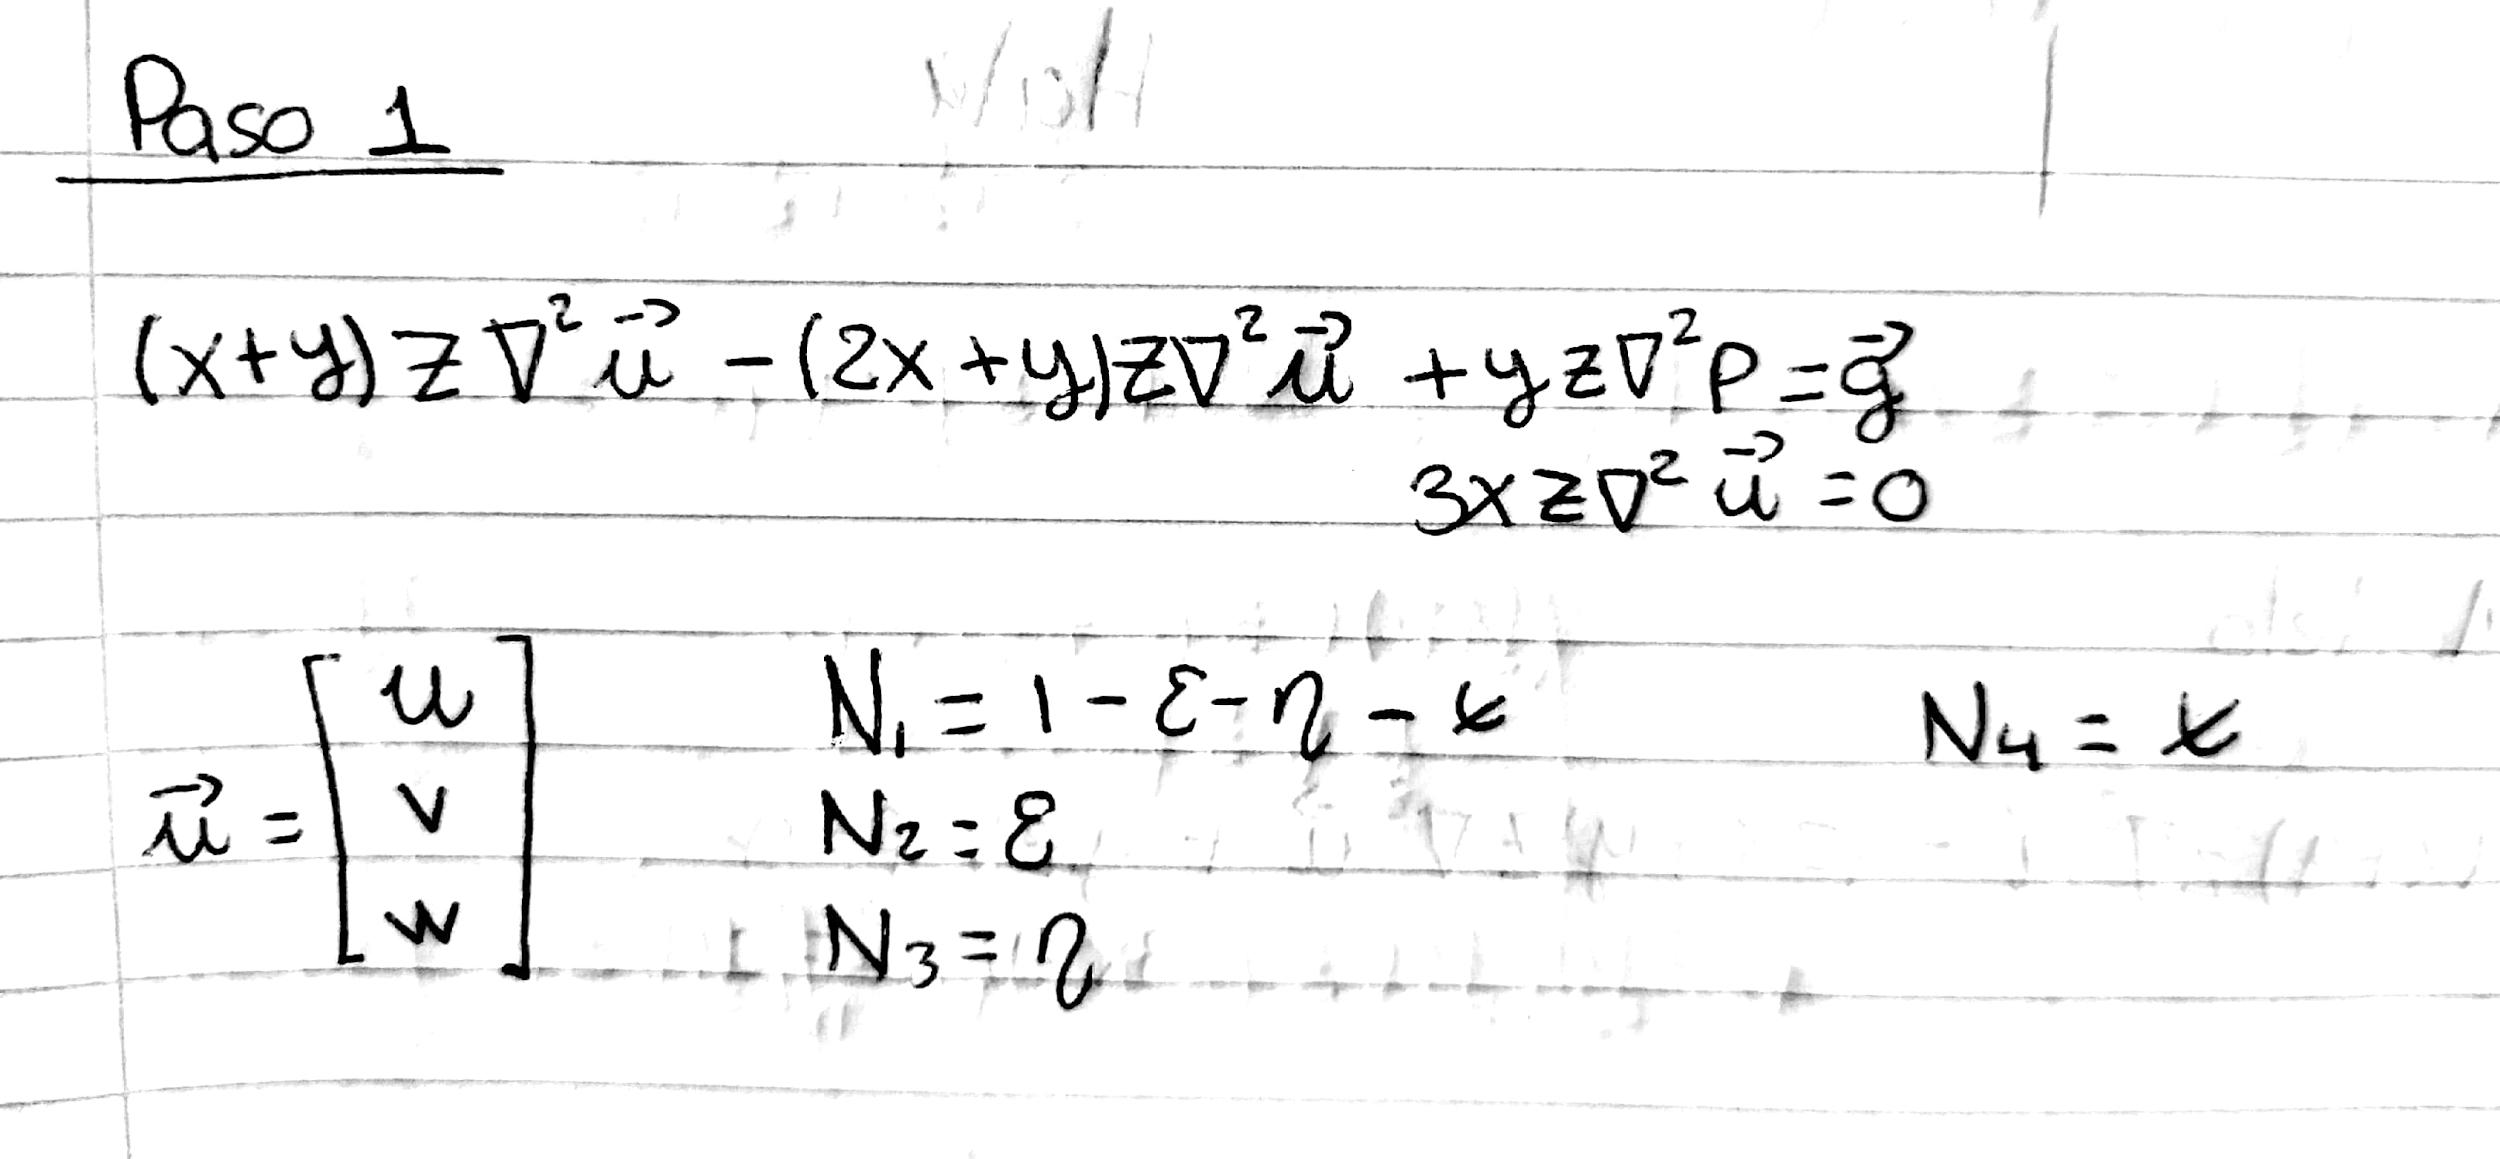 Paso 1
(x+y) z ∇² u⃗ - (2x+y) z ∇² u⃗ + y z ∇² p = g⃗
3 x z ∇² u⃗ = 0
u⃗ = [u v w]
N₁ = 1 - ε - η - x
N₄ = x
N₂ = ε
N₃ = η